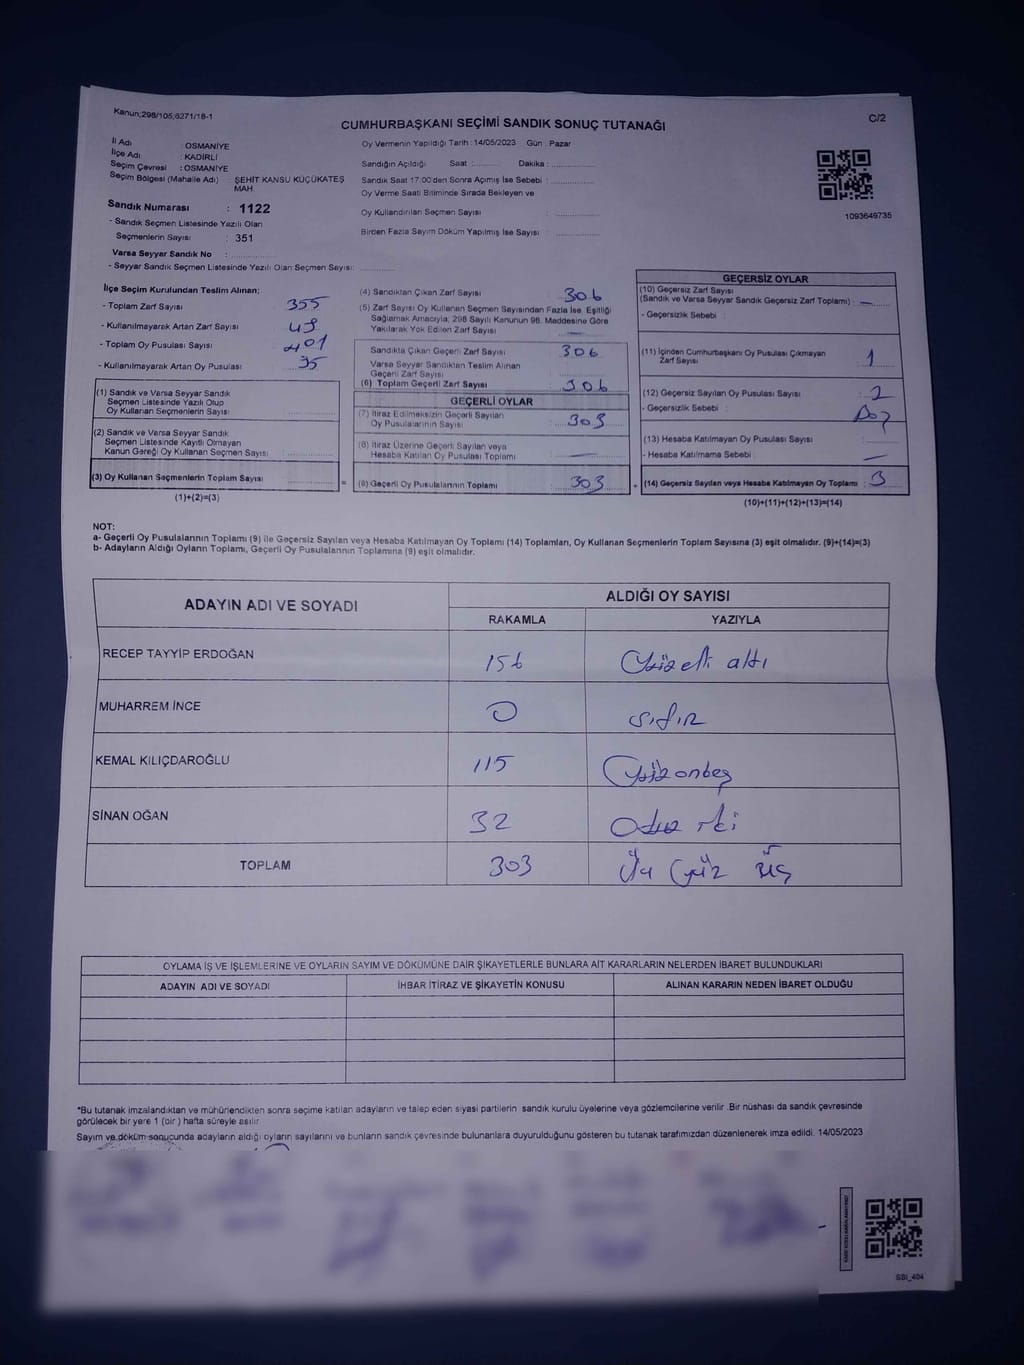 Kanun;298/105,6271/18-1
CUMHURBAŞKANI SEÇİMİ SANDIK SONUÇ TUTANAĞI
C/2
İl Adı : OSMANİYE
İlçe Adı : KADİRLİ
Seçim Çevresi : OSMANİYE
Seçim Bölgesi (Mahalle Adı) : ŞEHİT KANSU KÜÇÜKATEŞ MAH.
Sandık Numarası : 1122
- Sandık Seçmen Listesinde Yazılı Olan
Seçmenlerin Sayısı : 351
Varsa Seyyar Sandık No :
- Seyyar Sandık Seçmen Listesinde Yazılı Olan Seçmen Sayısı:
Oy Vermenin Yapıldığı Tarih : 14/05/2023 Gün : Pazar
Sandığın Açıldığı Saat : Dakika :
Sandık Saat 17:00'den Sonra Açımış İse Sebebi :
Oy Verme Saati Bitiminde Sırada Bekleyen ve
Oy Kullandırılan Seçmen Sayısı :
Birden Fazla Sayım Döküm Yapılmış İse Sayısı :
1093649735
İlçe Seçim Kurulundan Teslim Alınan;
- Toplam Zarf Sayısı 355
- Kullanılmayarak Artan Zarf Sayısı 49
- Toplam Oy Pusulası Sayısı 401
- Kullanılmayarak Artan Oy Pusulası 95
(1) Sandık ve Varsa Seyyar Sandık
Seçmen Listesinde Yazılı Olup
Oy Kullanan Seçmenlerin Sayısı :
(2) Sandık ve Varsa Seyyar Sandık
Seçmen Listesinde Kayıtlı Olmayan
Kanun Gereği Oy Kullanan Seçmen Sayısı :
(3) Oy Kullanan Seçmenlerin Toplam Sayısı
(1)+(2)=(3)
(4) Sandıktan Çıkan Zarf Sayısı : 306
(5) Zarf Sayısı Oy Kullanan Seçmen Sayısından Fazla İse, Eşitliği
Sağlamak Amacıyla, 298 Sayılı Kanunun 98. Maddesine Göre
Yakılarak Yok Edilen Zarf Sayısı : —
Sandıkta Çıkan Geçerli Zarf Sayısı : 306
Varsa Seyyar Sandıktan Teslim Alınan
Geçerli Zarf Sayısı
(6) Toplam Geçerli Zarf Sayısı : 306
GEÇERLİ OYLAR
(7) İtiraz Edilmeksizin Geçerli Sayılan
Oy Pusulalarının Sayısı : 303
(8) İtiraz Üzerine Geçerli Sayılan veya
Hesaba Katılan Oy Pusulası Toplamı : —
(9) Geçerli Oy Pusulalarının Toplamı : 303
GEÇERSİZ OYLAR
(10) Geçersiz Zarf Sayısı
(Sandık ve Varsa Seyyar Sandık Geçersiz Zarf Toplamı) : —
- Geçersizlik Sebebi :
(11) İçinden Cumhurbaşkanı Oy Pusulası Çıkmayan
Zarf Sayısı : 1
(12) Geçersiz Sayılan Oy Pusulası Sayısı : 2
- Geçersizlik Sebebi :
(13) Hesaba Katılmayan Oy Pusulası Sayısı :
- Hesaba Katılmama Sebebi : —
(14) Geçersiz Sayılan veya Hesaba Katılmayan Oy Toplamı : 3
(10)+(11)+(12)+(13)=(14)
NOT:
a- Geçerli Oy Pusulalarının Toplamı (9) ile Geçersiz Sayılan veya Hesaba Katılmayan Oy Toplamı (14) Toplamları, Oy Kullanan Seçmenlerin Toplam Sayısına (3) eşit olmalıdır. (9)+(14)=(3)
b- Adayların Aldığı Oyların Toplamı, Geçerli Oy Pusulalarının Toplamına (9) eşit olmalıdır.
ADAYIN ADI VE SOYADI
ALDIĞI OY SAYISI
RAKAMLA YAZIYLA
RECEP TAYYİP ERDOĞAN 156 Yüzelli altı
MUHARREM İNCE 0 sıfır
KEMAL KILIÇDAROĞLU 115 Yüzonbeş
SİNAN OĞAN 32 Otuz iki
TOPLAM 303 Üç yüz üç
OYLAMA İŞ VE İŞLEMLERİNE VE OYLARIN SAYIM VE DÖKÜMÜNE DAİR ŞİKAYETLERLE BUNLARA AİT KARARLARIN NELERDEN İBARET BULUNDUKLARI
ADAYIN ADI VE SOYADI İHBAR İTİRAZ VE ŞİKAYETİN KONUSU ALINAN KARARIN NEDEN İBARET OLDUĞU
*Bu tutanak imzalandıktan ve mühürlendikten sonra seçime katılan adayların ve talep eden siyasi partilerin sandık kurulu üyelerine veya gözlemcilerine verilir .Bir nüshası da sandık çevresinde
görülecek bir yere 1 (bir ) hafta süreyle asılır.
Sayım ve döküm sonucunda adayların aldığı oyların sayılarını ve bunların sandık çevresinde bulunanlara duyurulduğunu gösteren bu tutanak tarafımızdan düzenlenerek imza edildi. 14/05/2023
SBI_404